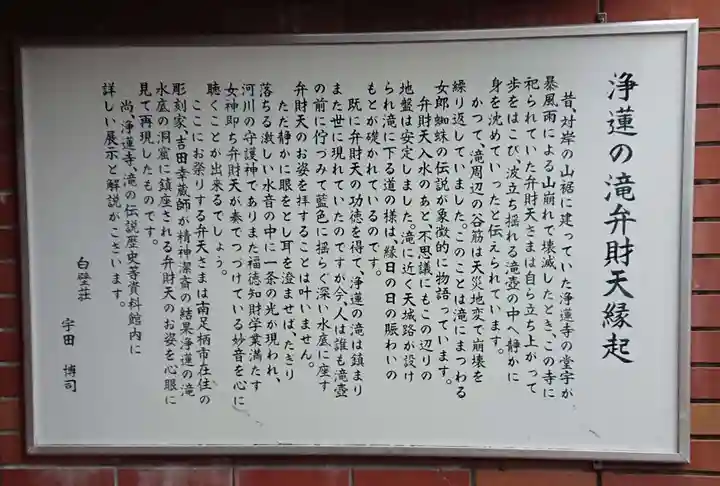 浄蓮の滝弁財天縁起
昔、対岸の山裾に建っていた浄蓮寺の堂宇が
暴風雨による山崩れで壊滅したとき、この寺に
祀られていた弁財天さまは自ら立ち上がって
歩をはこび、波立ち揺れる滝壺の中へ静かに
身を沈めていったと伝えられています。
かつて、滝周辺の谷筋は天災地変で崩壊を
繰り返していました。このことは滝にまつわる
女郎蜘蛛の伝説が象徴的に物語っています。
弁財天入水のあと、不思議にもこの辺りの
地盤は安定しました。滝に近く天城路が設け
られ滝に下る道の様は、縁日の日の賑わいの
もとが礎かれているのです。
既に弁財天の功徳を得て、浄蓮の滝は鎮まり
また世に現れていたのですが今、人は誰も滝壺
の前に佇づみて藍色に揺らぐ深い水底に座す
弁財天のお姿を拝することは叶いません。
ただ静かに眼をとじ耳を澄ませば、たぎり
落ちる激しい水音の中に一条の光が現われ、
河川の守護神でありまた福徳知財学業満たす
女神即ち弁財天が奏でつづけている妙音を心に
聴くことが出来るでしょう。
ここにお祭りする弁天さまは南足柄市在住の
彫刻家、吉田幸蔵師が精神潔斎の結果浄蓮の滝
水底の洞窟に鎮座される弁財天のお姿を心眼に
見て再現したものです。
尚、浄蓮寺、滝の伝説歴史等資料館内に
詳しい展示と解説がございます。
白壁荘
宇田 博司